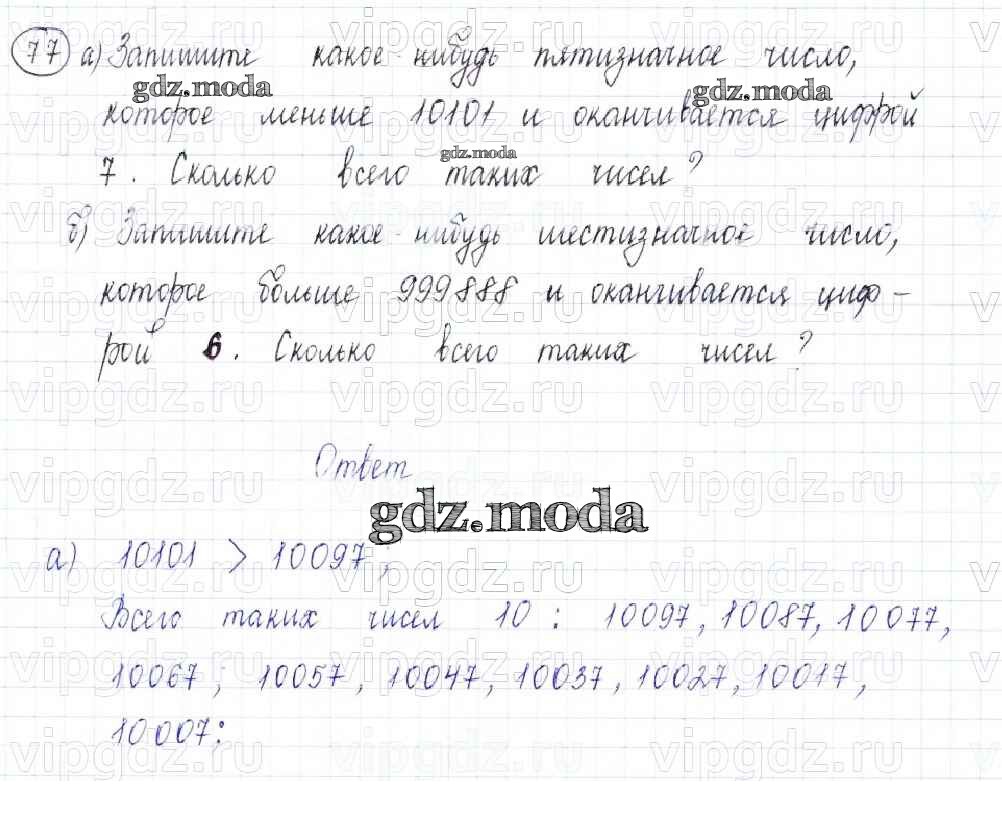 77 а) Запишите какое-нибудь пятизначное число,
которое меньше 10101 и оканчивается цифрой
7. Сколько всего таких чисел?
б) Запишите какое-нибудь шестизначное число,
которое больше 999888 и оканчивается циф-
рой 6. Сколько всего таких чисел?
Ответ
gdz.moda
а) 10101 > 10097;
Всего таких чисел 10: 10097, 10087, 10077,
10067; 10057, 10047, 10037, 10027, 10017,
10007: